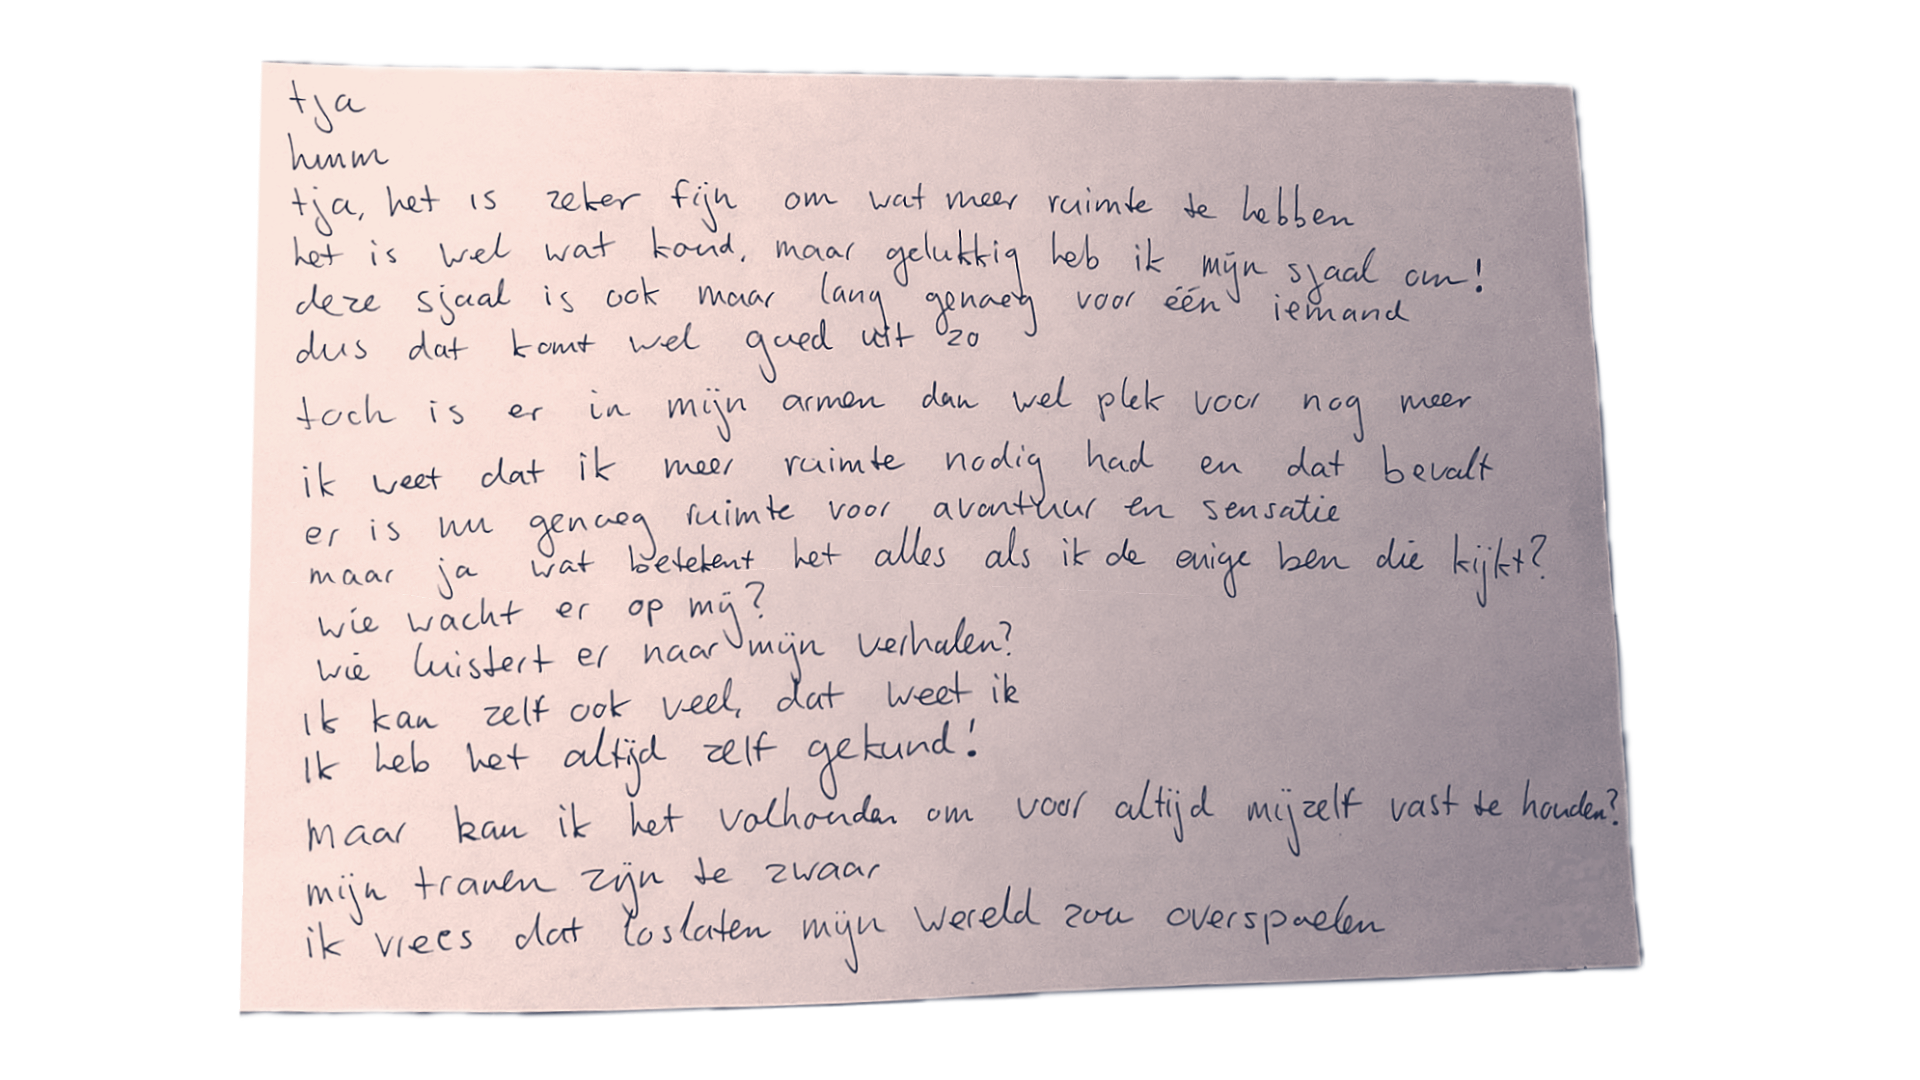 tja
hmm
tja, het is zeker fijn om wat meer ruimte te hebben
het is wel wat koud, maar gelukkig heb ik mijn sjaal om!
deze sjaal is ook maar lang genoeg voor één iemand
dus dat komt wel goed uit zo
toch is er in mijn armen dan wel plek voor nog meer
ik weet dat ik meer ruimte nodig had en dat bevalt
er is nu genoeg ruimte voor avontuur en sensatie
maar ja wat betekent het alles als ik de enige ben die kijkt?
wie wacht er op mij?
wie luistert er naar mijn verhalen?
Ik kan zelf ook veel, dat weet ik
Ik heb het altijd zelf gekund!
Maar kan ik het volhouden om voor altijd mijzelf vast te houden?
mijn tranen zijn te zwaar
ik vrees dat loslaten mijn wereld zou overspoelen